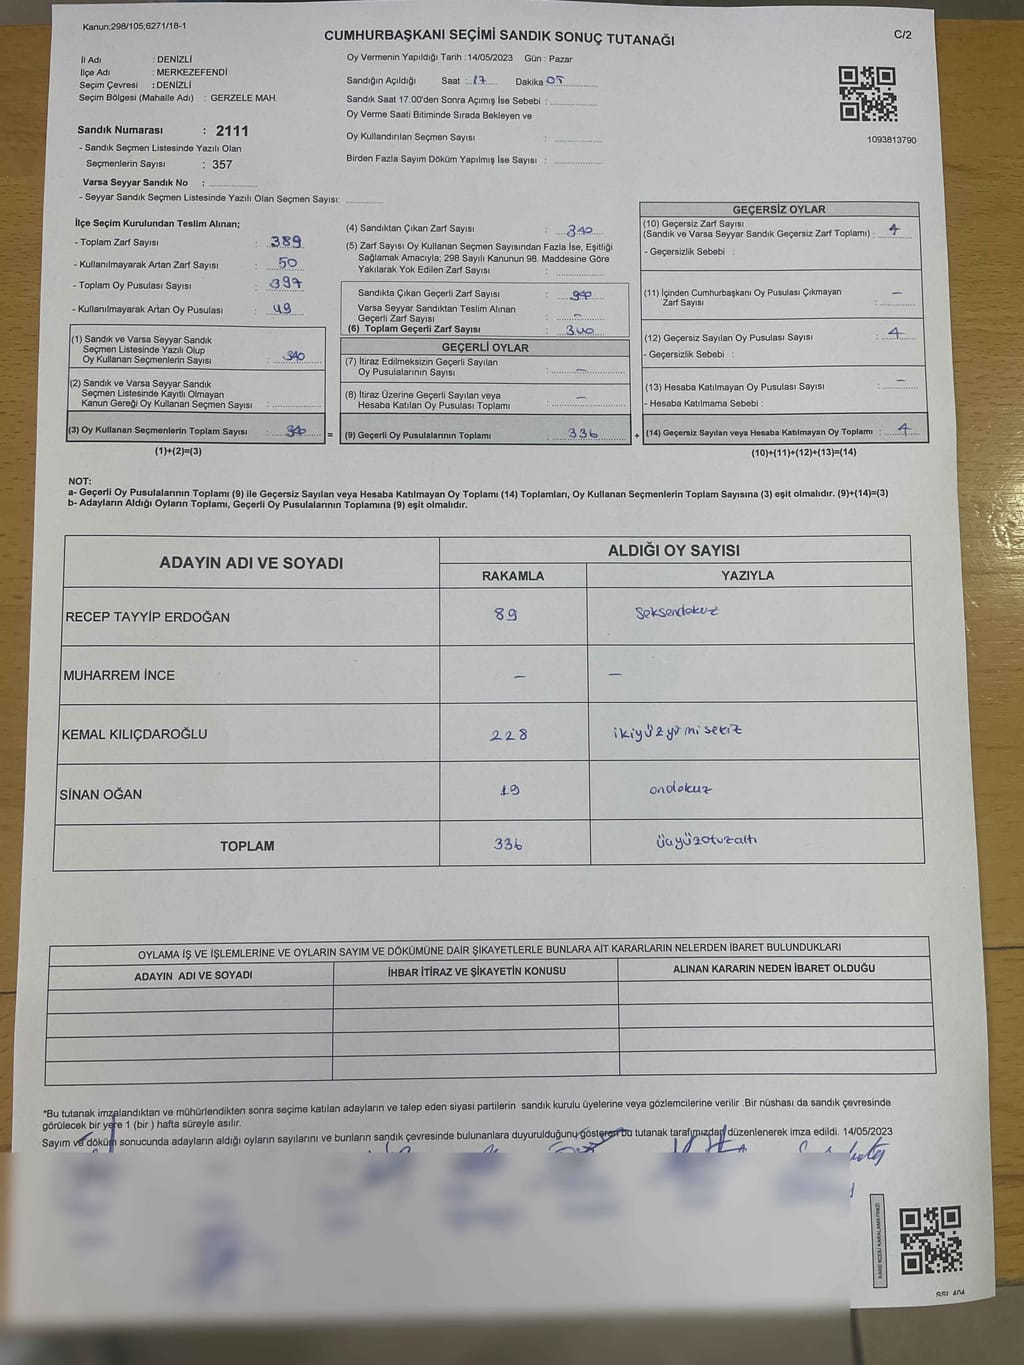 Kanun;298/105;6271/18-1
CUMHURBAŞKANI SEÇİMİ SANDIK SONUÇ TUTANAĞI
C/2
İl Adı : DENİZLİ
İlçe Adı : MERKEZEFENDİ
Seçim Çevresi : DENİZLİ
Seçim Bölgesi (Mahalle Adı) : GERZELE MAH.
Sandık Numarası : 2111
- Sandık Seçmen Listesinde Yazılı Olan
Seçmenlerin Sayısı : 357
Varsa Seyyar Sandık No :
- Seyyar Sandık Seçmen Listesinde Yazılı Olan Seçmen Sayısı:
Oy Vermenin Yapıldığı Tarih : 14/05/2023 Gün : Pazar
Sandığın Açıldığı Saat : 17 Dakika 05
Sandık Saat 17:00'den Sonra Açımış İse Sebebi :
Oy Verme Saati Bitiminde Sırada Bekleyen ve
Oy Kullandırılan Seçmen Sayısı :
Birden Fazla Sayım Döküm Yapılmış İse Sayısı :
1093813790
İlçe Seçim Kurulundan Teslim Alınan;
- Toplam Zarf Sayısı : 389
- Kullanılmayarak Artan Zarf Sayısı : 50
- Toplam Oy Pusulası Sayısı : 397
- Kullanılmayarak Artan Oy Pusulası : 49
(1) Sandık ve Varsa Seyyar Sandık
Seçmen Listesinde Yazılı Olup
Oy Kullanan Seçmenlerin Sayısı : 340
(2) Sandık ve Varsa Seyyar Sandık
Seçmen Listesinde Kayıtlı Olmayan
Kanun Gereği Oy Kullanan Seçmen Sayısı :
(3) Oy Kullanan Seçmenlerin Toplam Sayısı : 340
(1)+(2)=(3)
(4) Sandıktan Çıkan Zarf Sayısı : 340
(5) Zarf Sayısı Oy Kullanan Seçmen Sayısından Fazla İse, Eşitliği
Sağlamak Amacıyla; 298 Sayılı Kanunun 98. Maddesine Göre
Yakılarak Yok Edilen Zarf Sayısı :
Sandıkta Çıkan Geçerli Zarf Sayısı : 340
Varsa Seyyar Sandıktan Teslim Alınan
Geçerli Zarf Sayısı : -
(6) Toplam Geçerli Zarf Sayısı : 340
GEÇERLİ OYLAR
(7) İtiraz Edilmeksizin Geçerli Sayılan
Oy Pusulalarının Sayısı : -
(8) İtiraz Üzerine Geçerli Sayılan veya
Hesaba Katılan Oy Pusulası Toplamı : -
= (9) Geçerli Oy Pusulalarının Toplamı : 336
GEÇERSİZ OYLAR
(10) Geçersiz Zarf Sayısı
(Sandık ve Varsa Seyyar Sandık Geçersiz Zarf Toplamı) : 4
- Geçersizlik Sebebi :
(11) İçinden Cumhurbaşkanı Oy Pusulası Çıkmayan
Zarf Sayısı : -
(12) Geçersiz Sayılan Oy Pusulası Sayısı : 4
- Geçersizlik Sebebi :
(13) Hesaba Katılmayan Oy Pusulası Sayısı : -
- Hesaba Katılmama Sebebi :
+ (14) Geçersiz Sayılan veya Hesaba Katılmayan Oy Toplamı : 4
(10)+(11)+(12)+(13)=(14)
NOT:
a- Geçerli Oy Pusulalarının Toplamı (9) ile Geçersiz Sayılan veya Hesaba Katılmayan Oy Toplamı (14) Toplamları, Oy Kullanan Seçmenlerin Toplam Sayısına (3) eşit olmalıdır. (9)+(14)=(3)
b- Adayların Aldığı Oyların Toplamı, Geçerli Oy Pusulalarının Toplamına (9) eşit olmalıdır.
ADAYIN ADI VE SOYADI
ALDIĞI OY SAYISI
RAKAMLA YAZIYLA
RECEP TAYYİP ERDOĞAN 89 seksendokuz
MUHARREM İNCE - -
KEMAL KILIÇDAROĞLU 228 ikiyüzyirmisekiz
SİNAN OĞAN 19 ondokuz
TOPLAM 336 üçyüzotuzaltı
OYLAMA İŞ VE İŞLEMLERİNE VE OYLARIN SAYIM VE DÖKÜMÜNE DAİR ŞİKAYETLERLE BUNLARA AİT KARARLARIN NELERDEN İBARET BULUNDUKLARI
ADAYIN ADI VE SOYADI İHBAR İTİRAZ VE ŞİKAYETİN KONUSU ALINAN KARARIN NEDEN İBARET OLDUĞU
*Bu tutanak imzalandıktan ve mühürlendikten sonra seçime katılan adayların ve talep eden siyasi partilerin sandık kurulu üyelerine veya gözlemcilerine verilir .Bir nüshası da sandık çevresinde
görülecek bir yere 1 (bir ) hafta süreyle asılır.
Sayım ve döküm sonucunda adayların aldığı oyların sayılarını ve bunların sandık çevresinde bulunanlara duyurulduğunu gösteren bu tutanak tarafımızdan düzenlenerek imza edildi. 14/05/2023
KARE KODU KARALAMAYINIZ!